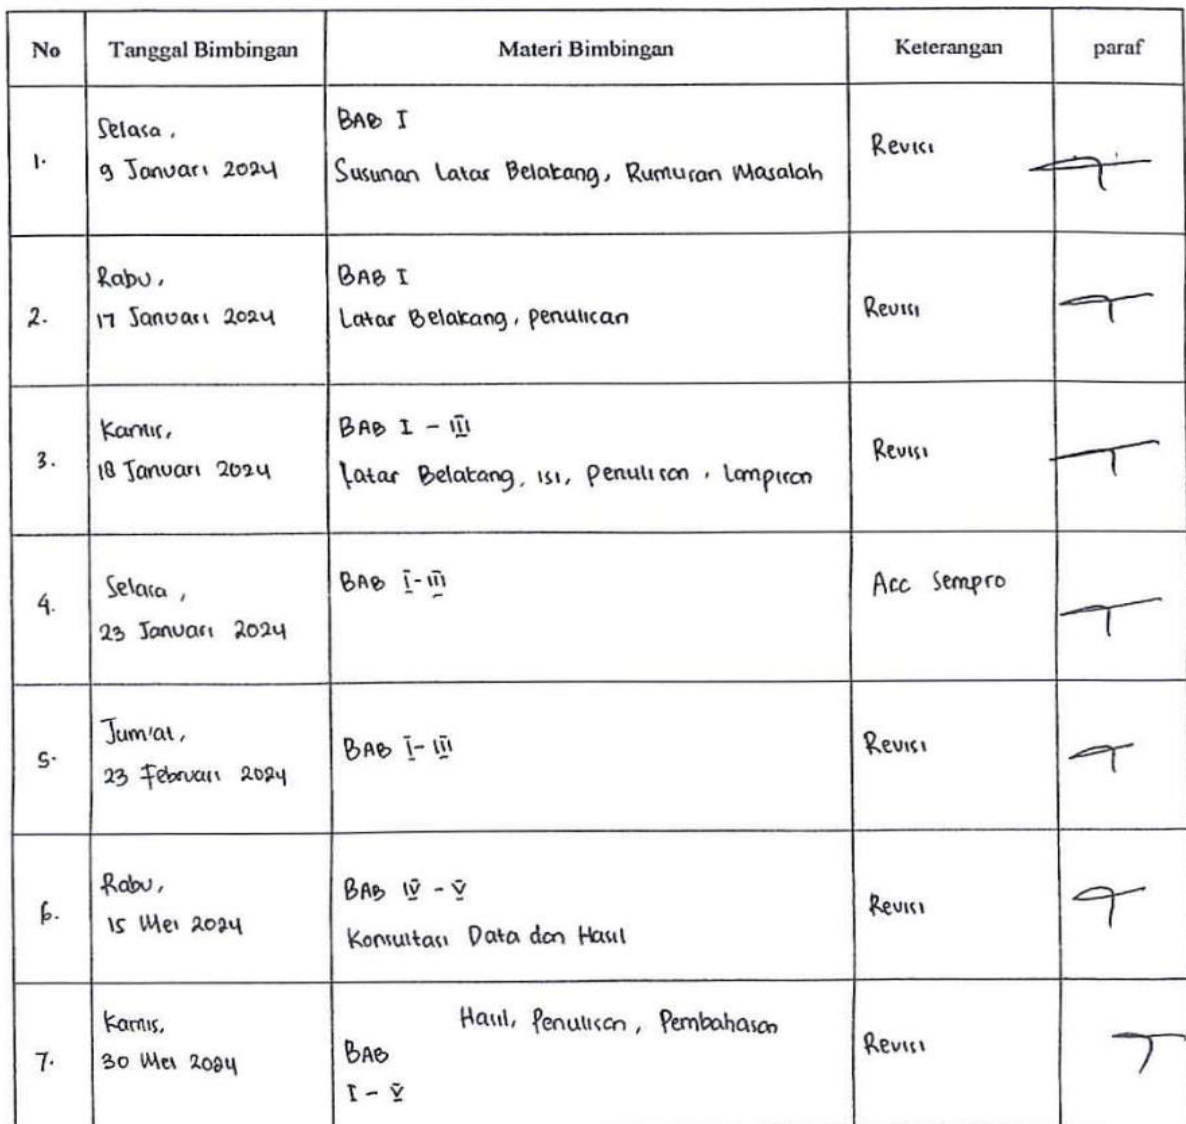 No Tanggal Bimbingan Materi Bimbingan Keterangan paraf
1. Selasa, 9 Januari 2024 BAB I Revisi
Susunan Latar Belakang, Rumusan Masalah
2. Rabu, 17 Januari 2024 BAB I Revisi
Latar Belakang, penulisan
3. Kamis, 18 Januari 2024 BAB I - III Revisi
Latar Belakang, isi, penulisan, Lampiran
4. Selasa, 23 Januari 2024 BAB I - III Acc Sempro
5. Jum'at, 23 Februari 2024 BAB I - III Revisi
6. Rabu, 15 Mei 2024 BAB IV - V Revisi
Konsultasi Data dan Hasil
7. Kamis, 30 Mei 2024 Hasil, Penulisan, Pembahasan Revisi
BAB
I - V